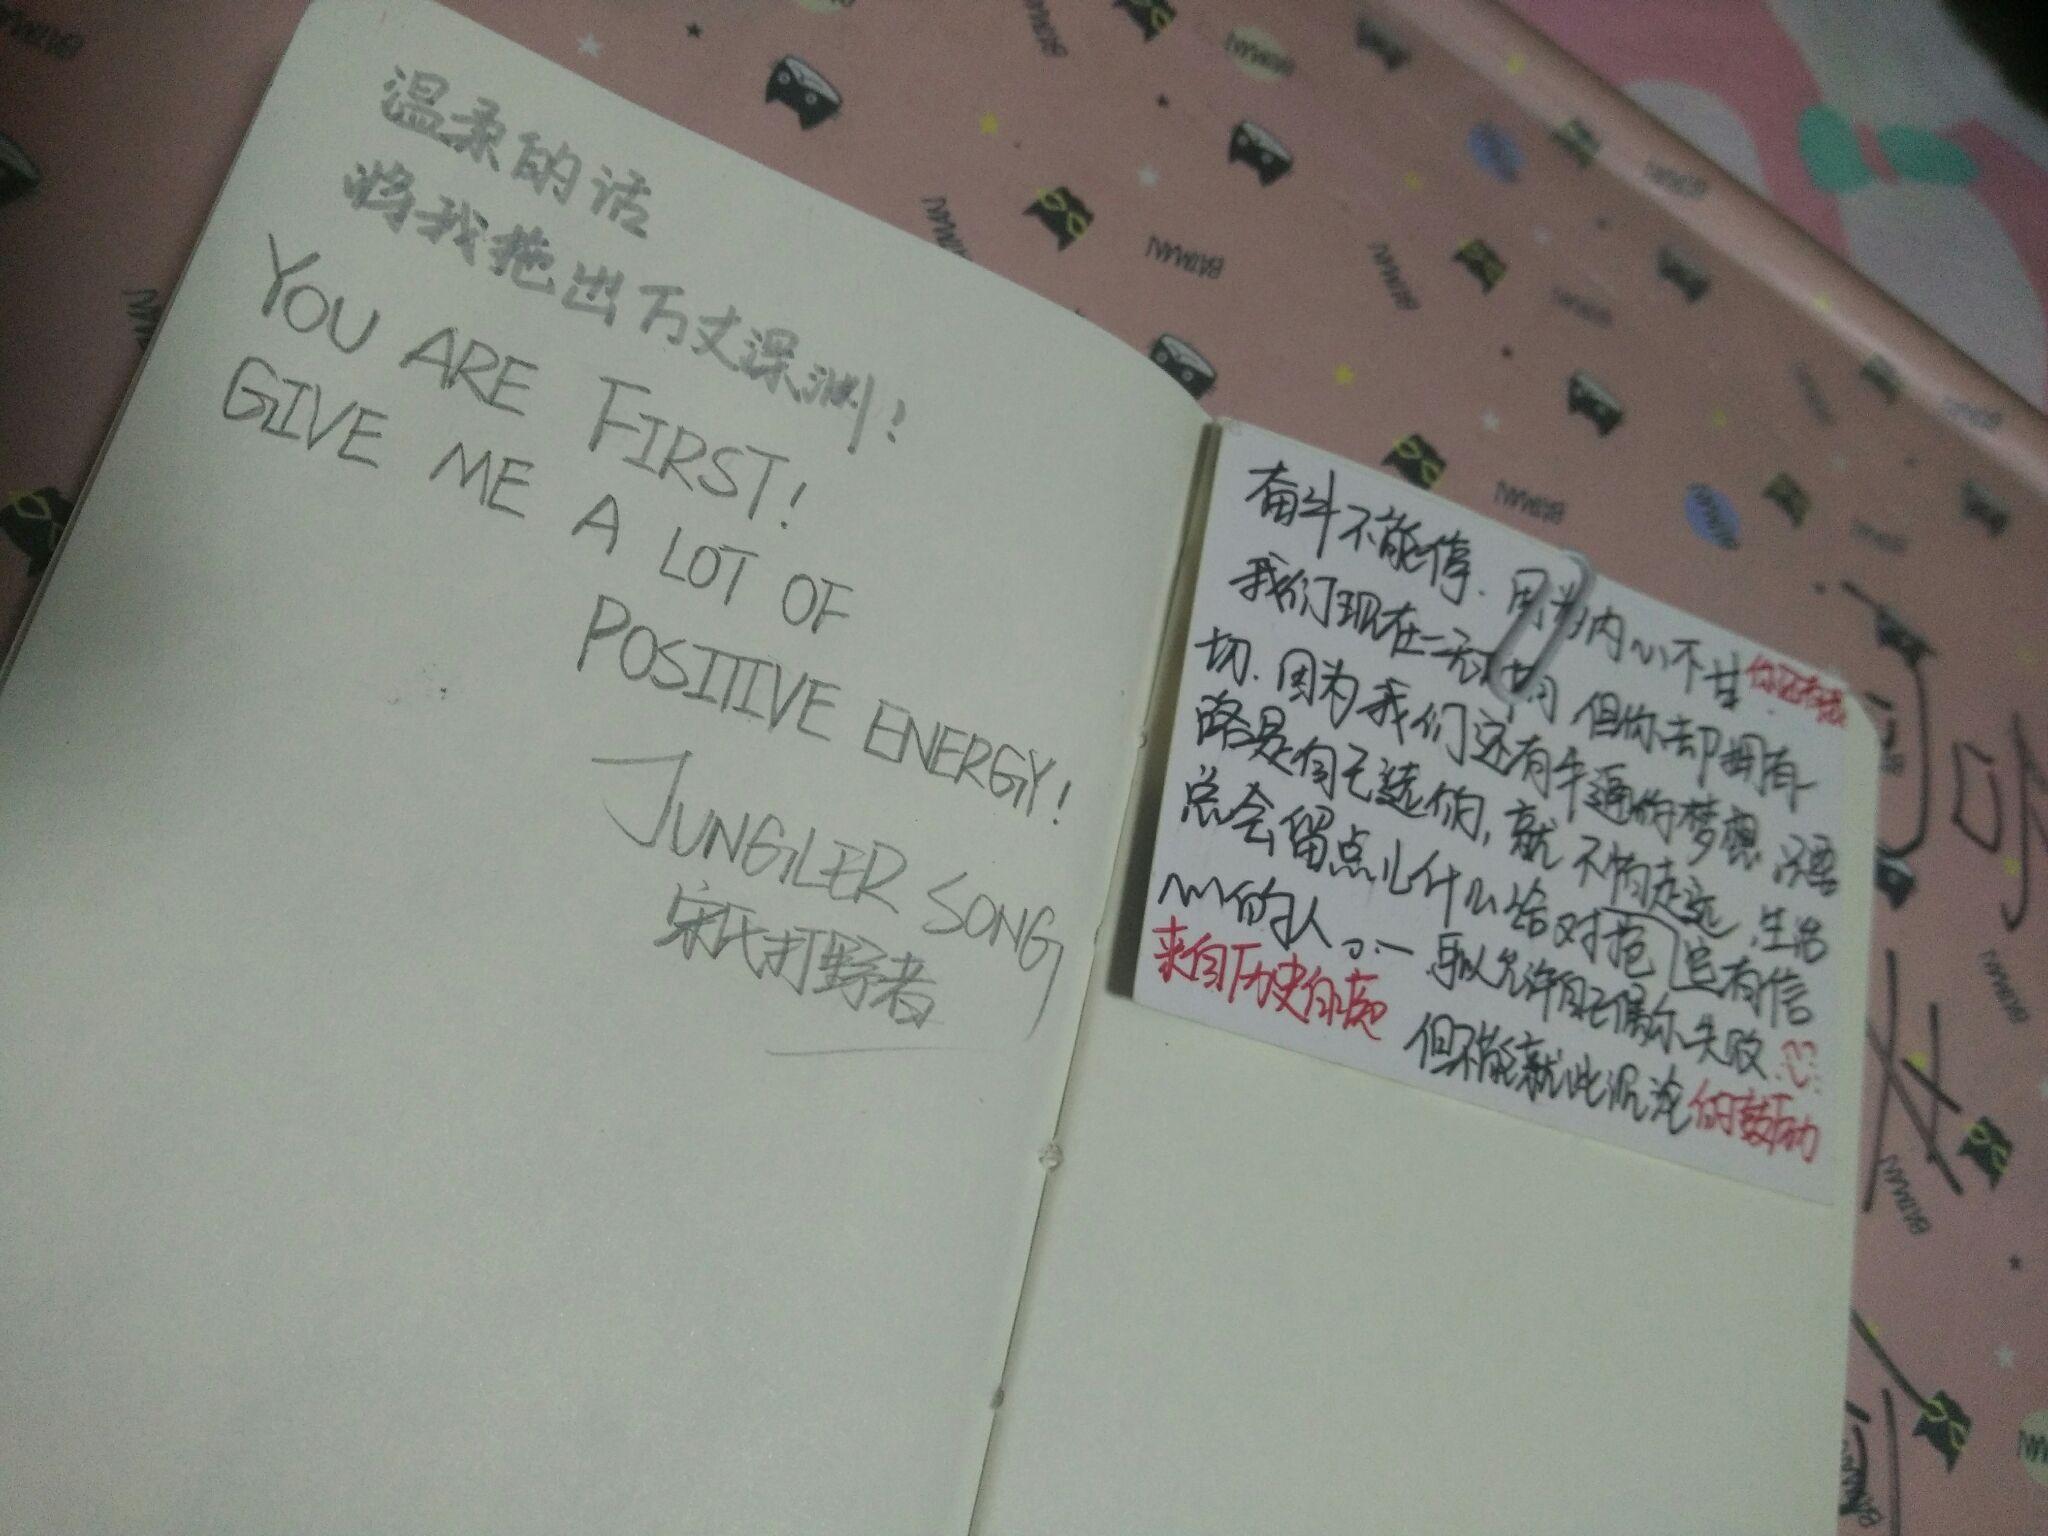 温柔的话
将我拖出万丈深渊!
YOU ARE FIRST!
GIVE ME A LOT OF
POSITIIVE ENERGY!
JUNGLER SONG
宋氏打野者
奋斗不能停.因为内心不甘.
我们现在一无 但你却拥有一
切.因为我们还有牛逼的梦想.
路是自己选的,就不怕走远.生活
总会留点儿什么给对抱定有信
心的人。允许自己偶尔失败
来自历史的
但不能就此沉沦
的鼓励
BATMAN
BATMAN
BATMAN
BATMAN